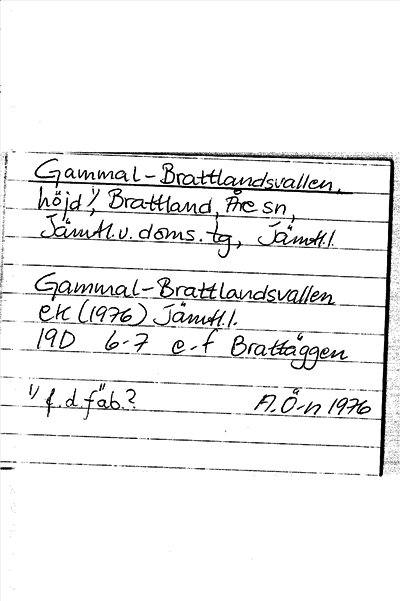 Gammal-Brattlandsvallen,
höjd 1), Brattland, Åre sn,
Jämtl.v.doms.tg, Jämtl.l.
Gammal-Brattlandsvallen
ek (1976) Jämtl.l.
19D 6-7 e-f Brattäggen
1) f.d.fäb.? A.Ö-n 1976